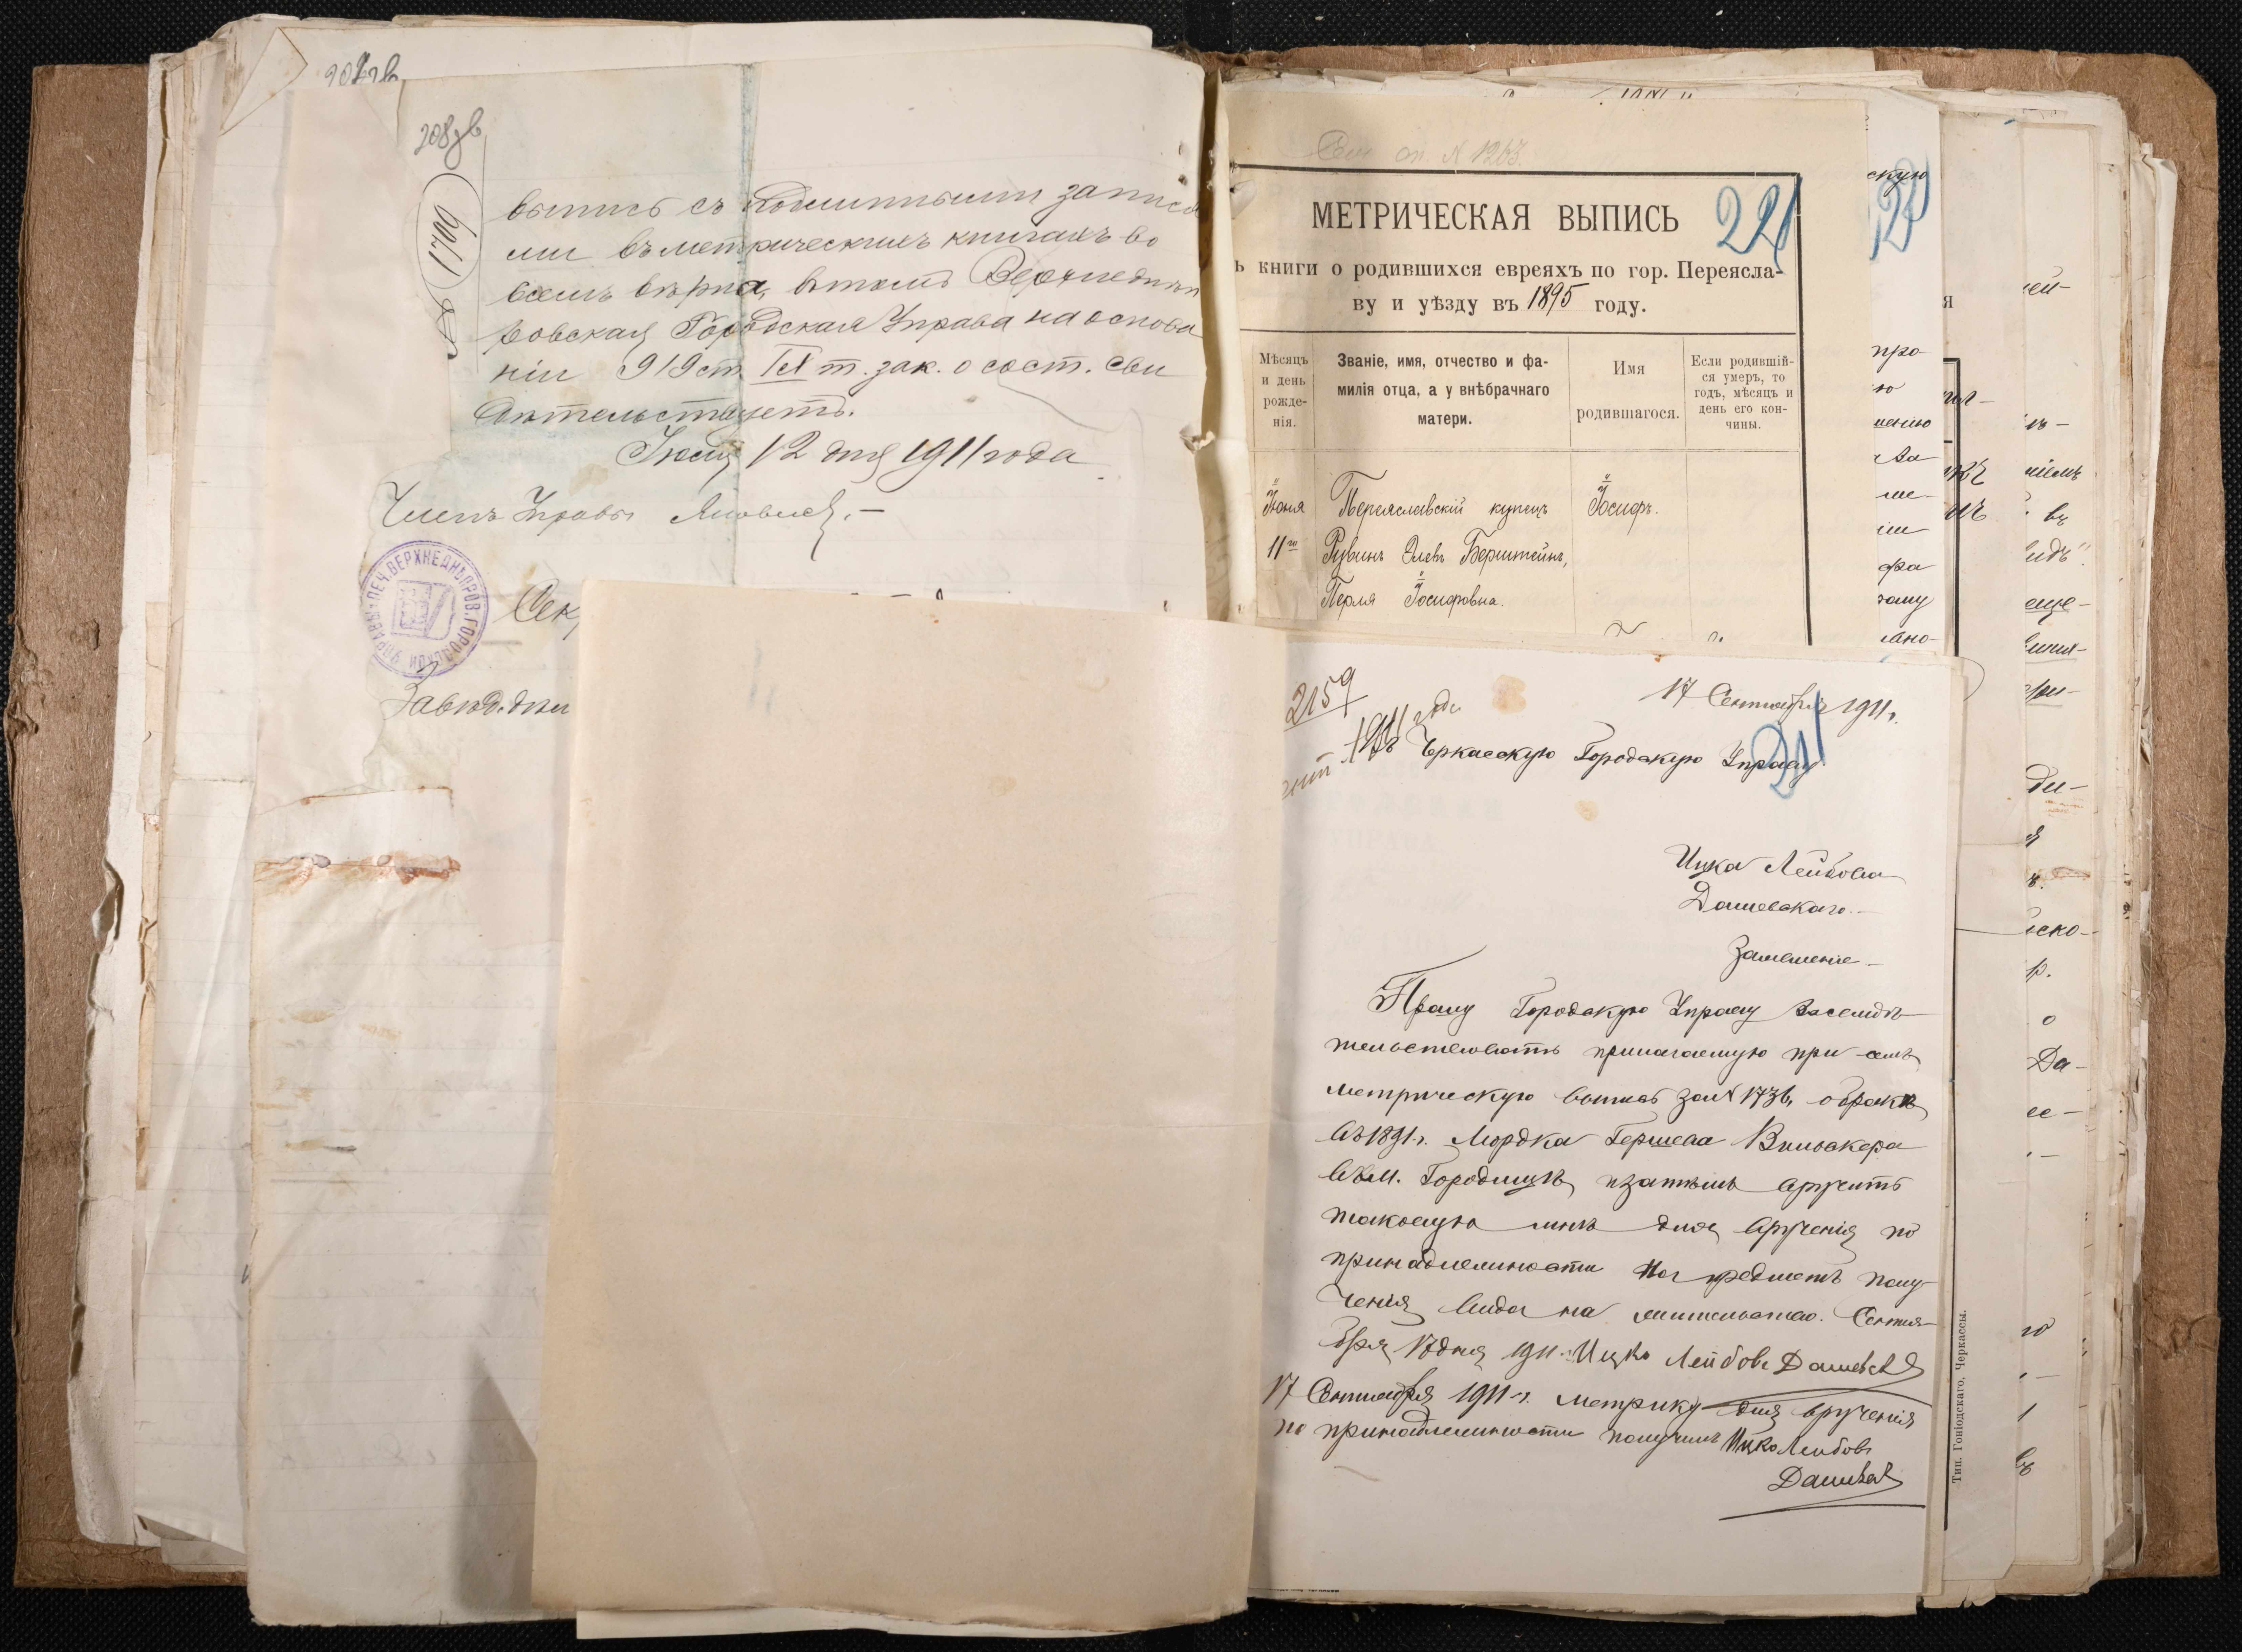 208 зв
выпись съ подлинными запися
ми въ метрическихъ книгахъ во
всемъ вѣрна, въ томъ Верхнеднѣп
ровская Городская Управа на основа
ніи 919 ст. IX т. зак. о сост. сви
дѣтельствуетъ.
Іюля 12 дня 1911 года
Членъ Управы
ПЕЧ. ВЕРХНЕДНѢПРОВ. ГОРОДСКОЙ УПРАВЫ
Сек
Завѣд.
№ 1263.
221
МЕТРИЧЕСКАЯ ВЫПИСЬ
ъ книги о родившихся евреяхъ по гор. Переясла-
ву и уѣзду въ 1895 году.
Мѣсяцъ и день рожде- нія.
Званіе, имя, отчество и фа- милія отца, а у внѣбрачнаго матери.
Имя родившагося.
Если родившій- ся умеръ, то годъ, мѣсяцъ и день его кон- чины.
Іюня
11го
Переяславскій купецъ
Рувинъ Элевъ Бернштейнъ,
Перля Іосифовна.
Іосифъ.
2159
1911 года
17 Сентября 1911 г.
211
Въ Черкасскую Городскую Управу
Ицка Лейбова
Дашевскаго.–
Заявленіе–
Прошу Городскую Управу засвидѣ-
тельствовать прилагаемую при семъ
метрическую выпись за № 1736, о бракѣ
въ 1891 г. Мордка Гершева Вильскера
въ м. Городищѣ, и затѣмъ вручить
таковую мнѣ для врученія по
принадлежности на предметъ полу-
ченія вида на жительство. Сентя-
бря 17 дня 1911 г. Ицко Лейбовъ Дашевскій
17 Сентября 1911 г. метрику для врученія
по принадлежности получилъ Ицко Лейбовъ
Дашевскій
скую
про-
ю
фа
ему
Да-
Тип. Гоніодскаго, Черкассы.